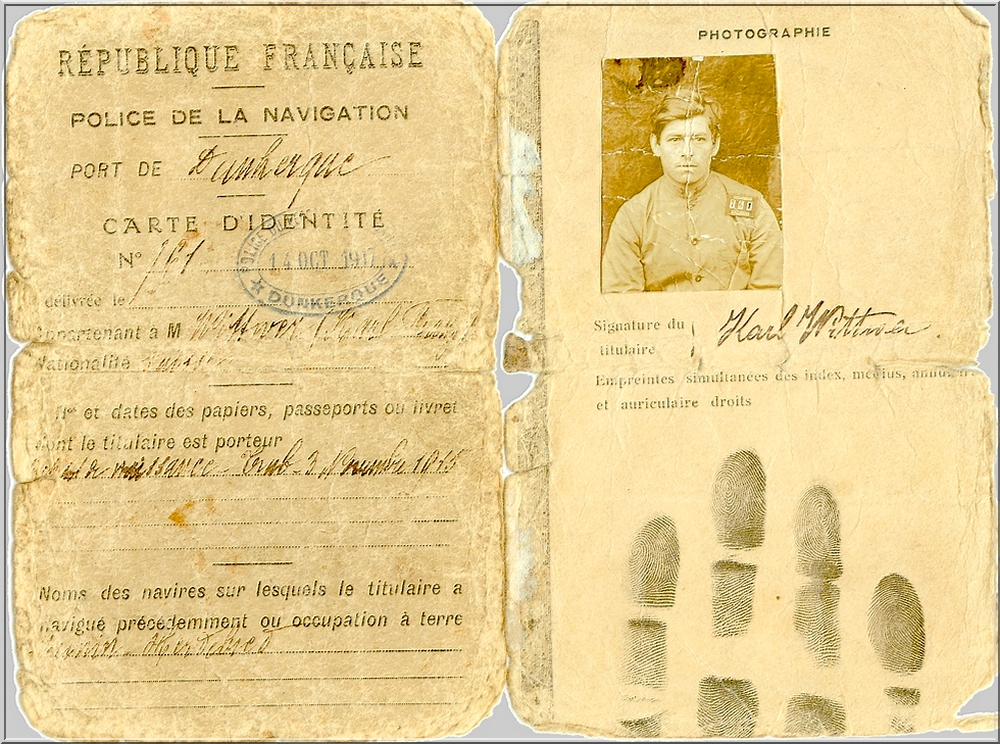 RÉPUBLIQUE FRANÇAISE
POLICE DE LA NAVIGATION
PORT DE Dunkerque
CARTE D'IDENTITÉ
N° 761
POLICE
14 OCT 1917
DUNKERQUE
délivrée le
Appartenant à M Wittwer (Karl
Nationalité Suisse
Nos et dates des papiers, passeports ou livret
dont le titulaire est porteur
naissance - Trub - 3 Novembre 1915
Noms des navires sur lesquels le titulaire a
navigué précédemment ou occupation à terre
PHOTOGRAPHIE
761
Signature du
titulaire
Karl Wittwer
Empreintes simultanées des index, médius, annulaire
et auriculaire droits